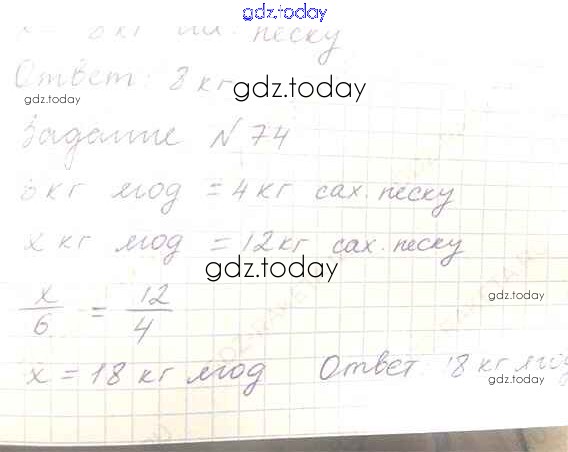 gdz.today
кг песку
Ответ: 8 кг
gdz.today
gdz.today
Задание N 74
6 кг ягод = 4 кг сах. песку
х кг ягод = 12 кг сах. песку
gdz.today
х/6 = 12/4
gdz.today
х = 18 кг ягод Ответ: 18 кг ягод
gdz.today
gdz.today